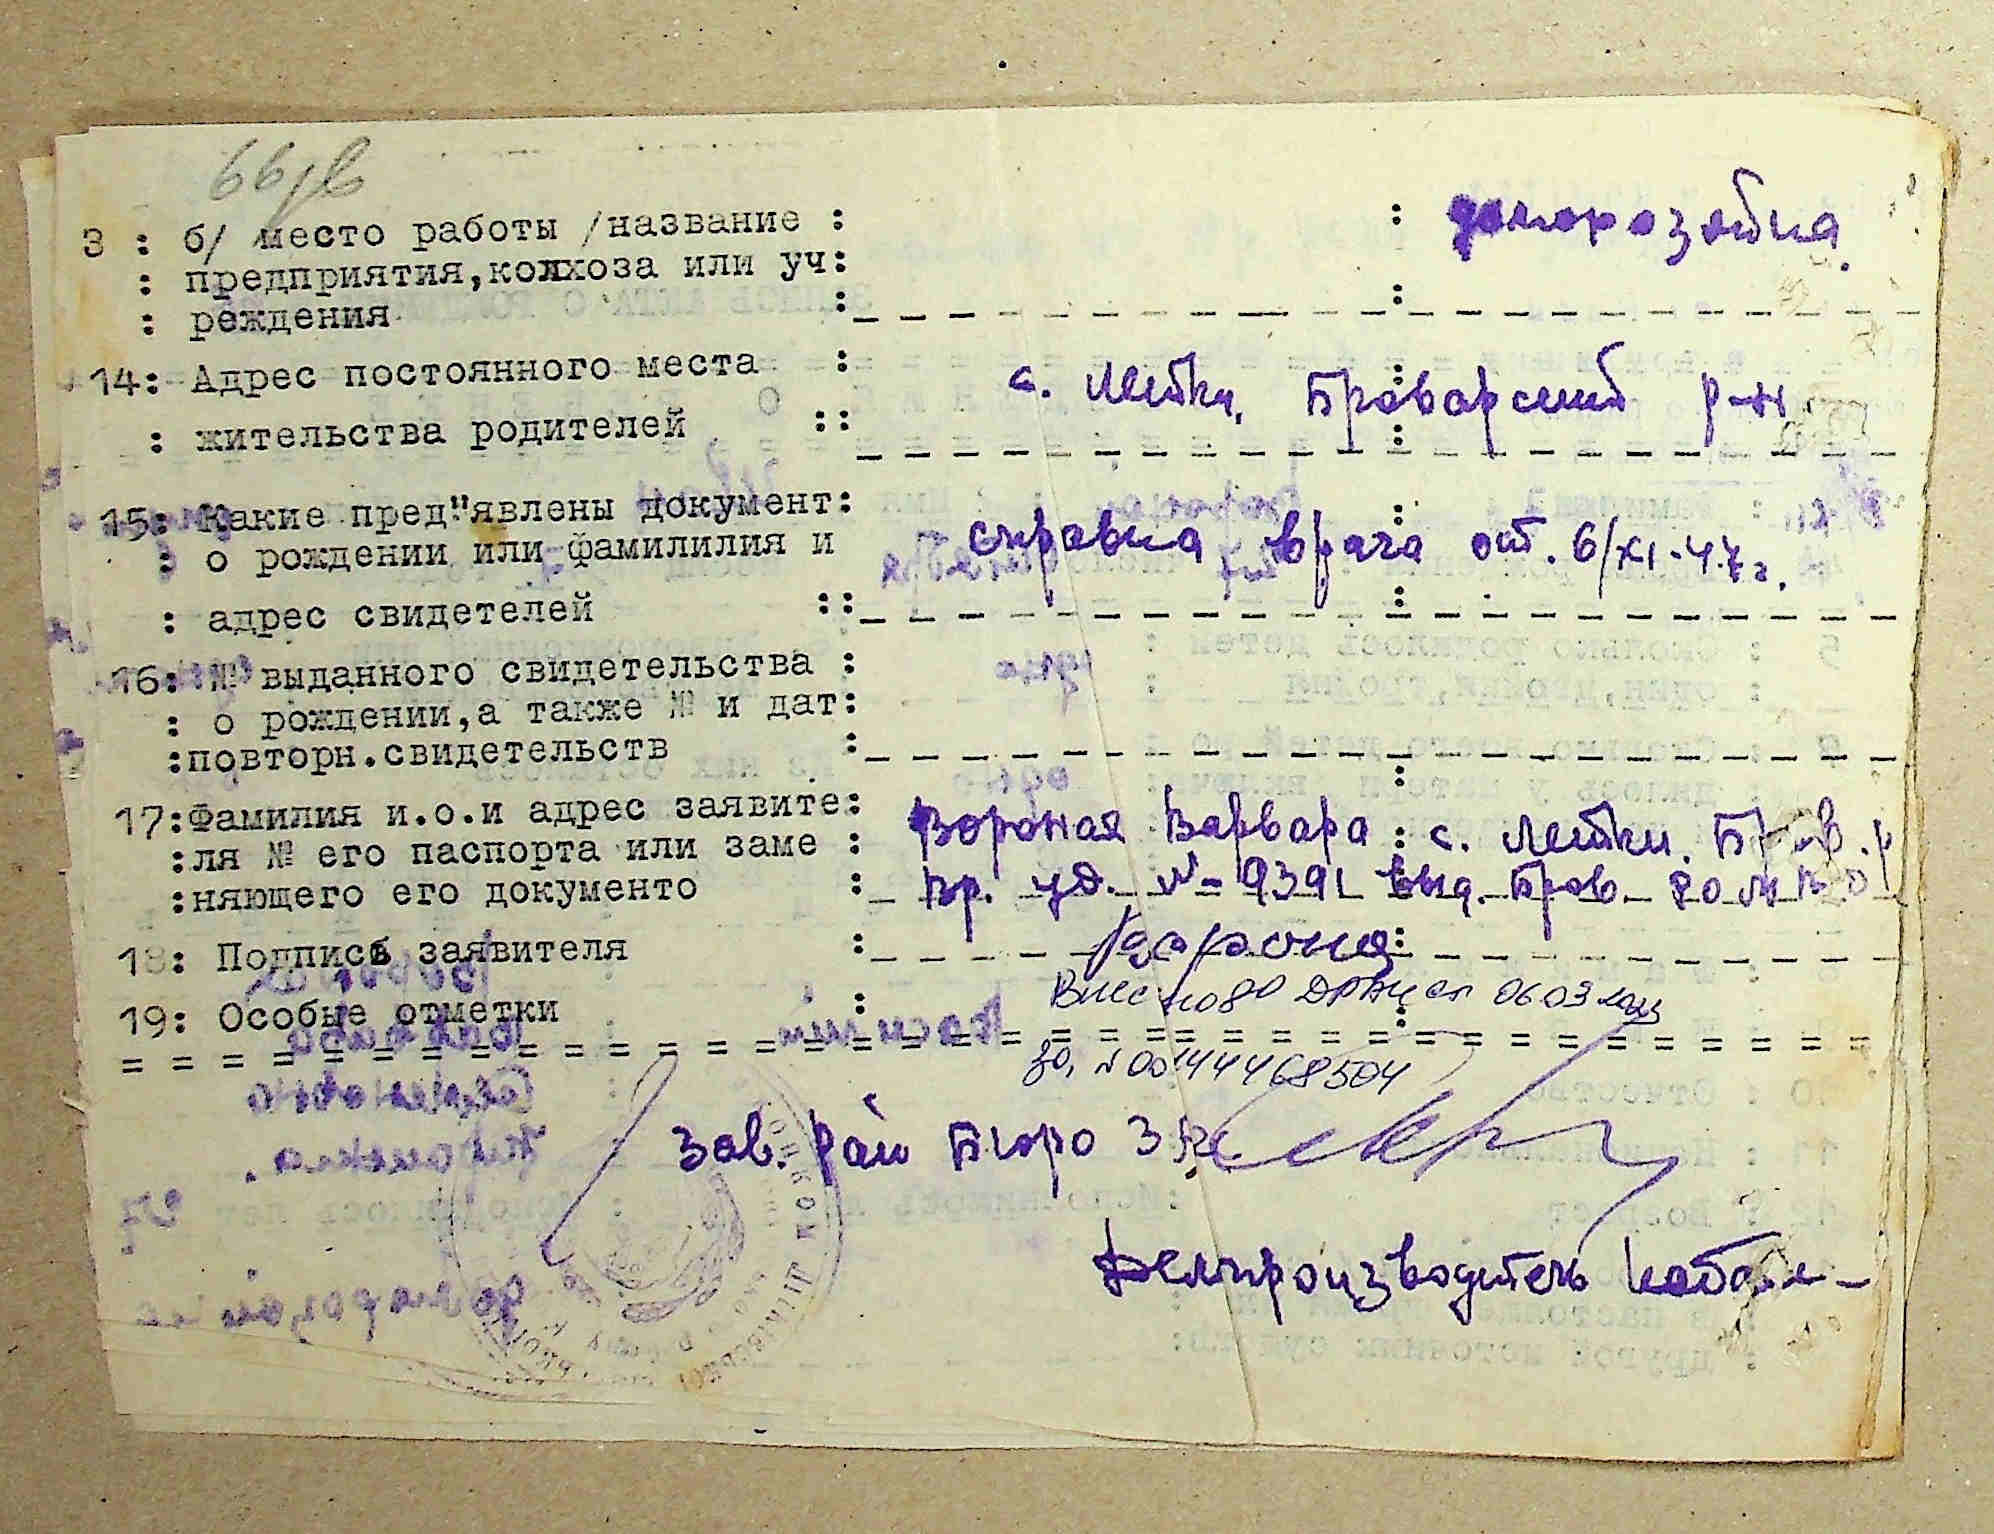 66 зв
3 : б/ место работы /название : : домохозяйка.
: предприятия,колхоза или уч:
: реждения :
14: Адрес постоянного места : с. Летки, Броварский р-н
: жительства родителей ::
15: Какие пред"явлены документ: справка врача от. 6/XI-47г.
: о рождении или фамилилия и
: адрес свидетелей ::
16: № выданного свидетельства :
: о рождении,а также № и дат:
:повторн.свидетельств :
17:Фамилия и.о.и адрес заявите: Вороная Варвара с. Летки. Бров. р
:ля № его паспорта или заме : Вр. уд. № 9391 выд. Бров.
:няющего его документо :
18: Подпись заявителя :
19: Особые отметки : 06 03
№ 00144468504
Зав. Рай Бюро Загс
Делопроизводитель